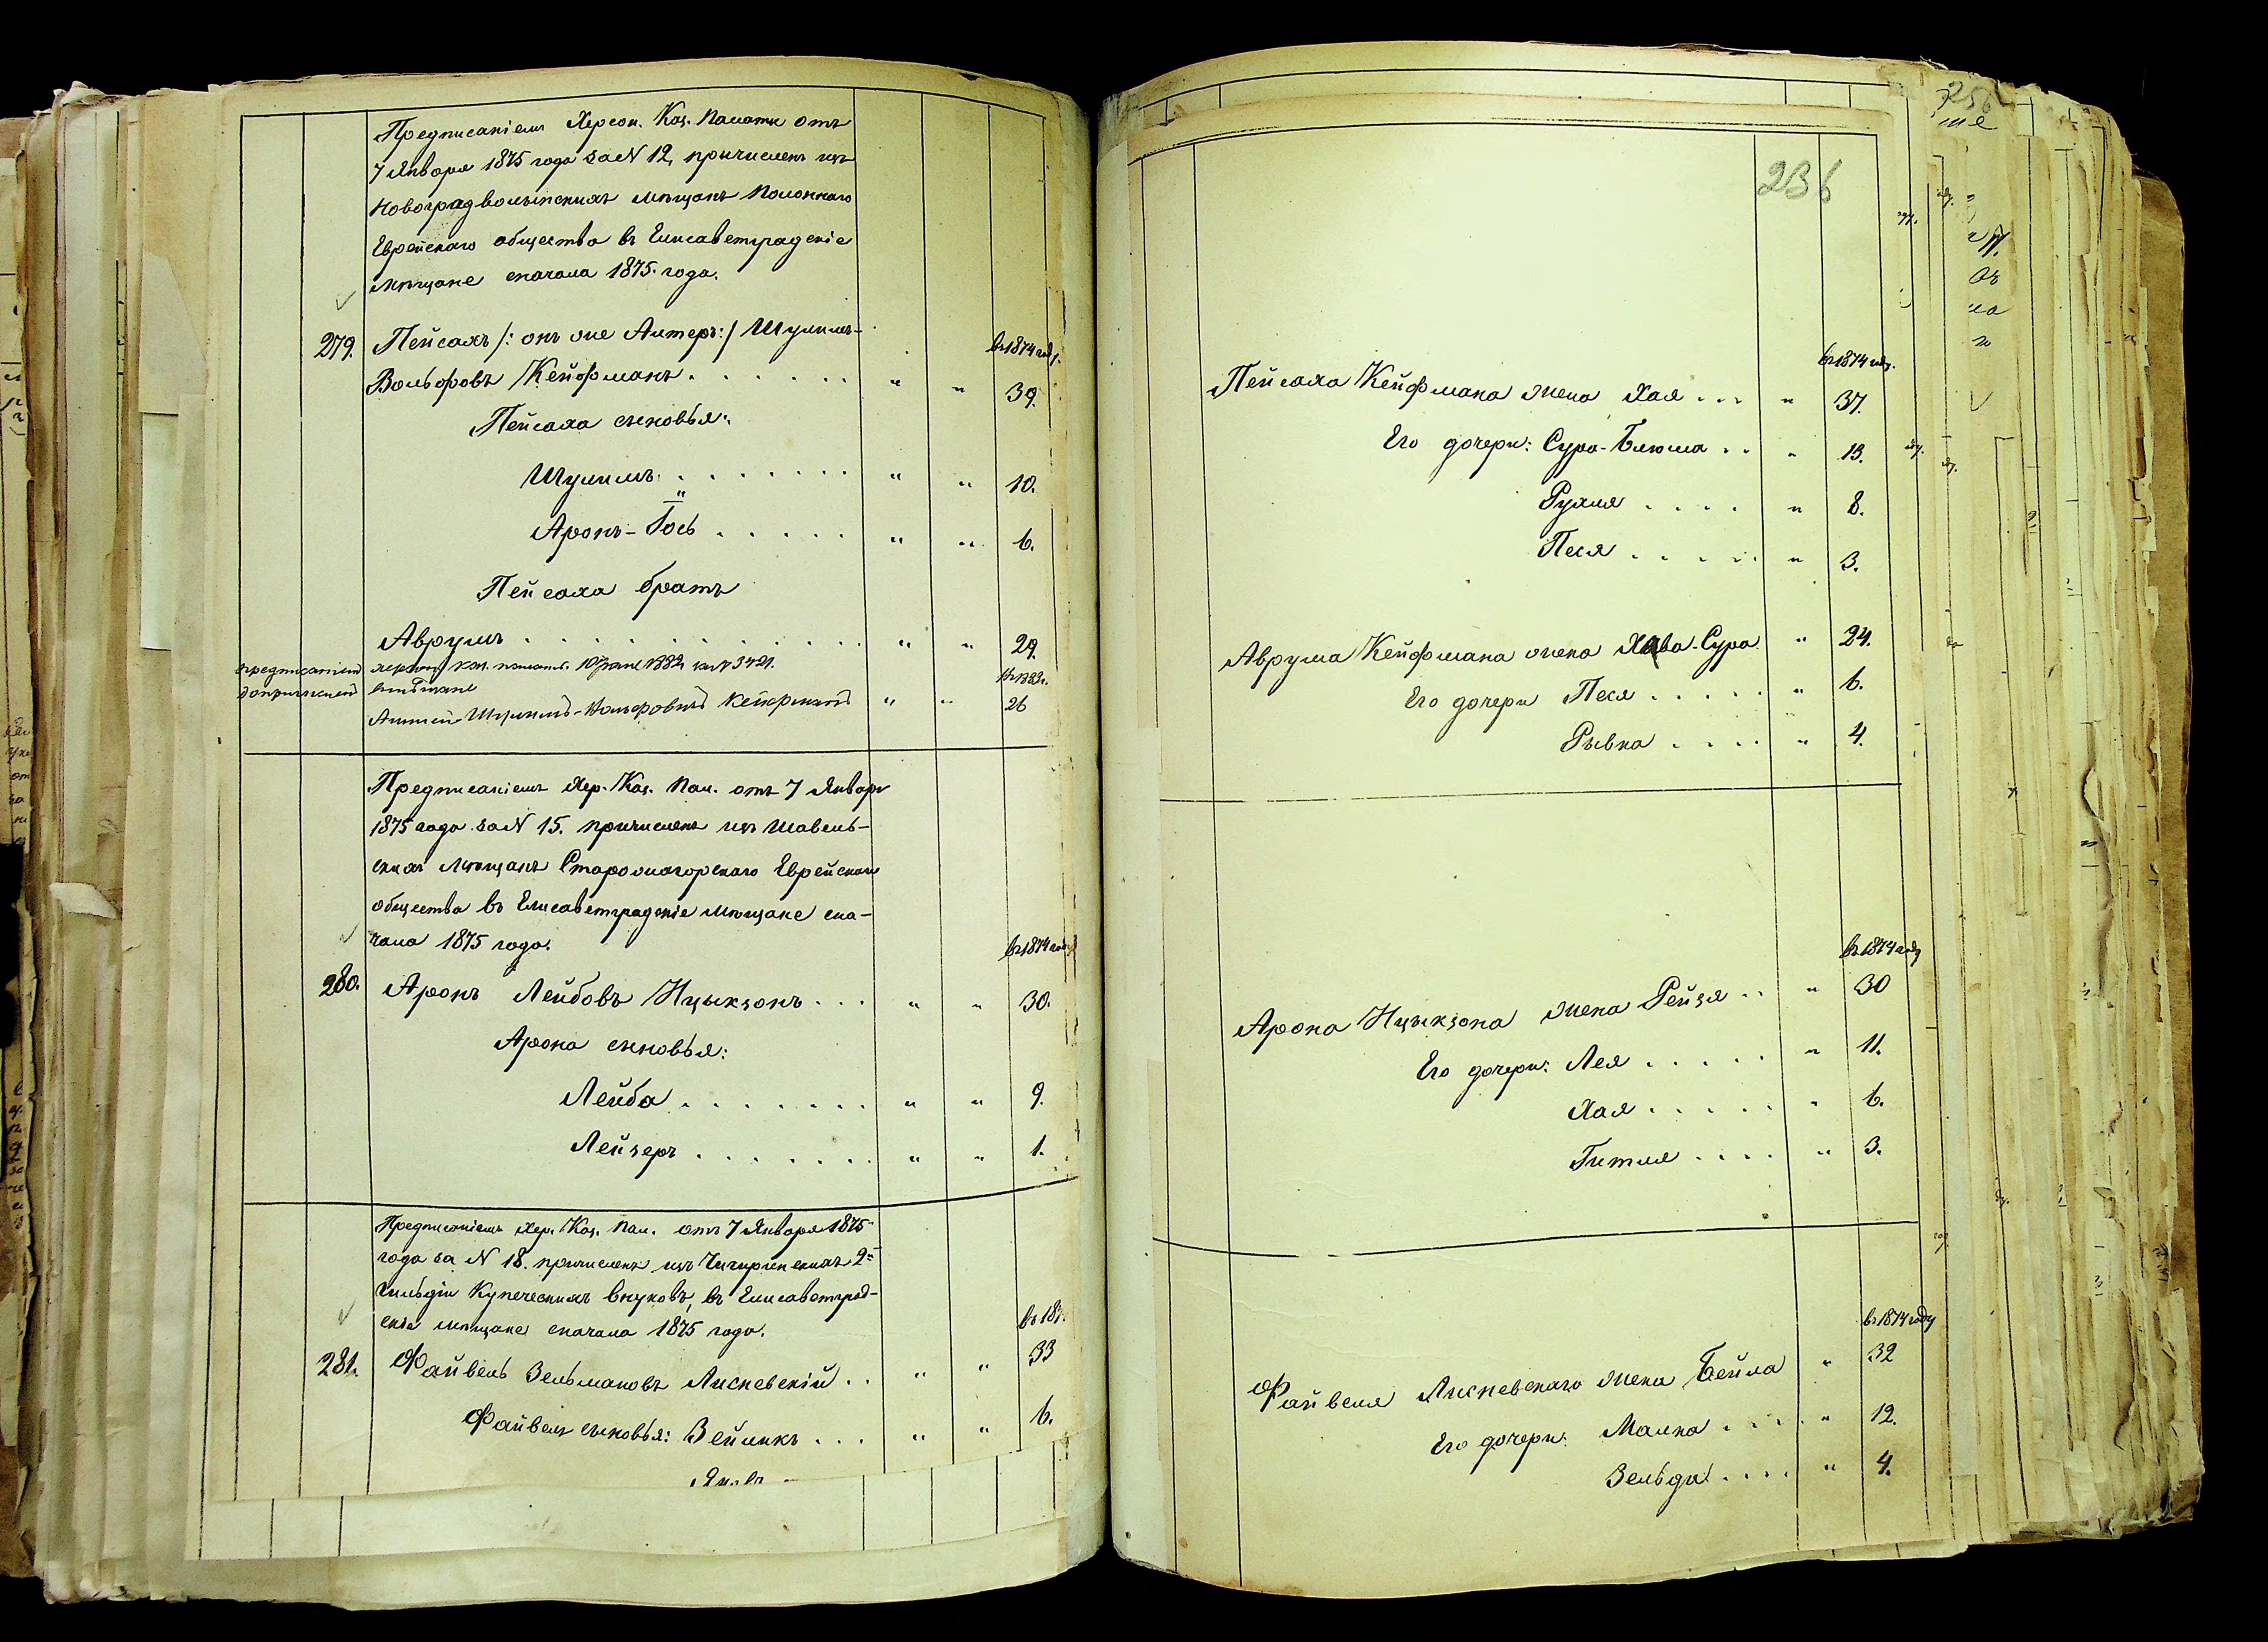 Предписаніемъ Херсон. Каз. Палаты отъ
7 Января 1875 года за N 12, причисленъ изъ
Новоградволынскихъ мѣщанъ Полоннаго
Еврейскаго общества въ Елисаветградскіе
мѣщане сначала 1875. года.
в 1874 году.
279. Пейсахъ /: онъ же Алтеръ :/ Шулимъ-
Вольфовъ Кейфманъ . . . . . . " " 39.
Пейсаха сыновья:
Шулимъ . . . . . . . " " 10.
Аронъ-Іось . . . . . " " 6.
Пейсаха братъ
Аврумъ . . . . . . . . . . " " 29.
за N 3421.
в 1882 г.
Шулимъ-Вольфовичъ Кейфманъ " " 26
Предписаніемъ Хер. Каз. Пал. отъ 7 Января
1875 года за N 15. причисленъ изъ Шавель-
скихъ мѣщанъ Старожагорскаго Еврейскаго
общества въ Елисаветградскіе мѣщане сна-
чала 1875 года.
в 1874 году
280. Аронъ Лейбовъ Ицыкзонъ . . . " " 30.
Арона сыновья:
Лейба . . . . . . . " " 9.
Лейзеръ . . . . . . . " " 1.
Предписаніемъ Хер. Каз. Пал. отъ 7 Января 1875
года за N 18. причисленъ изъ Чигиринскихъ 2й
Гильдіи Купеческихъ внуковъ, въ Елисаветград-
скіе мѣщане сначала 1875 года.
в 187
281. Файвель Зельмановъ Лисневскій . . " " 33
Файвеля сыновья: Зейликъ . . . " " 6.
236
в 1874 году.
Пейсаха Кейфмана жена Хая . . . " 37.
Его дочери: Сура-Блюма . . " 13.
Рухля . . . . " 8.
Песя . . . . . " 3.
Аврума Кейфмана жена Хава-Сура " 24.
Его дочери Песя . . . . . " 6.
Рывка . . . . " 4.
в 1874 году
Арона Ицыкзона жена Рейзя . . " 30
Его дочери: Лея . . . . . " 11.
Хая . . . . . " 6.
Гитля . . . . " 3.
в 1874 году
Файвеля Лисневскаго жена Бейла " 32
Его дочери: Малка . . . . " 12.
Зельда . . . . " 4.